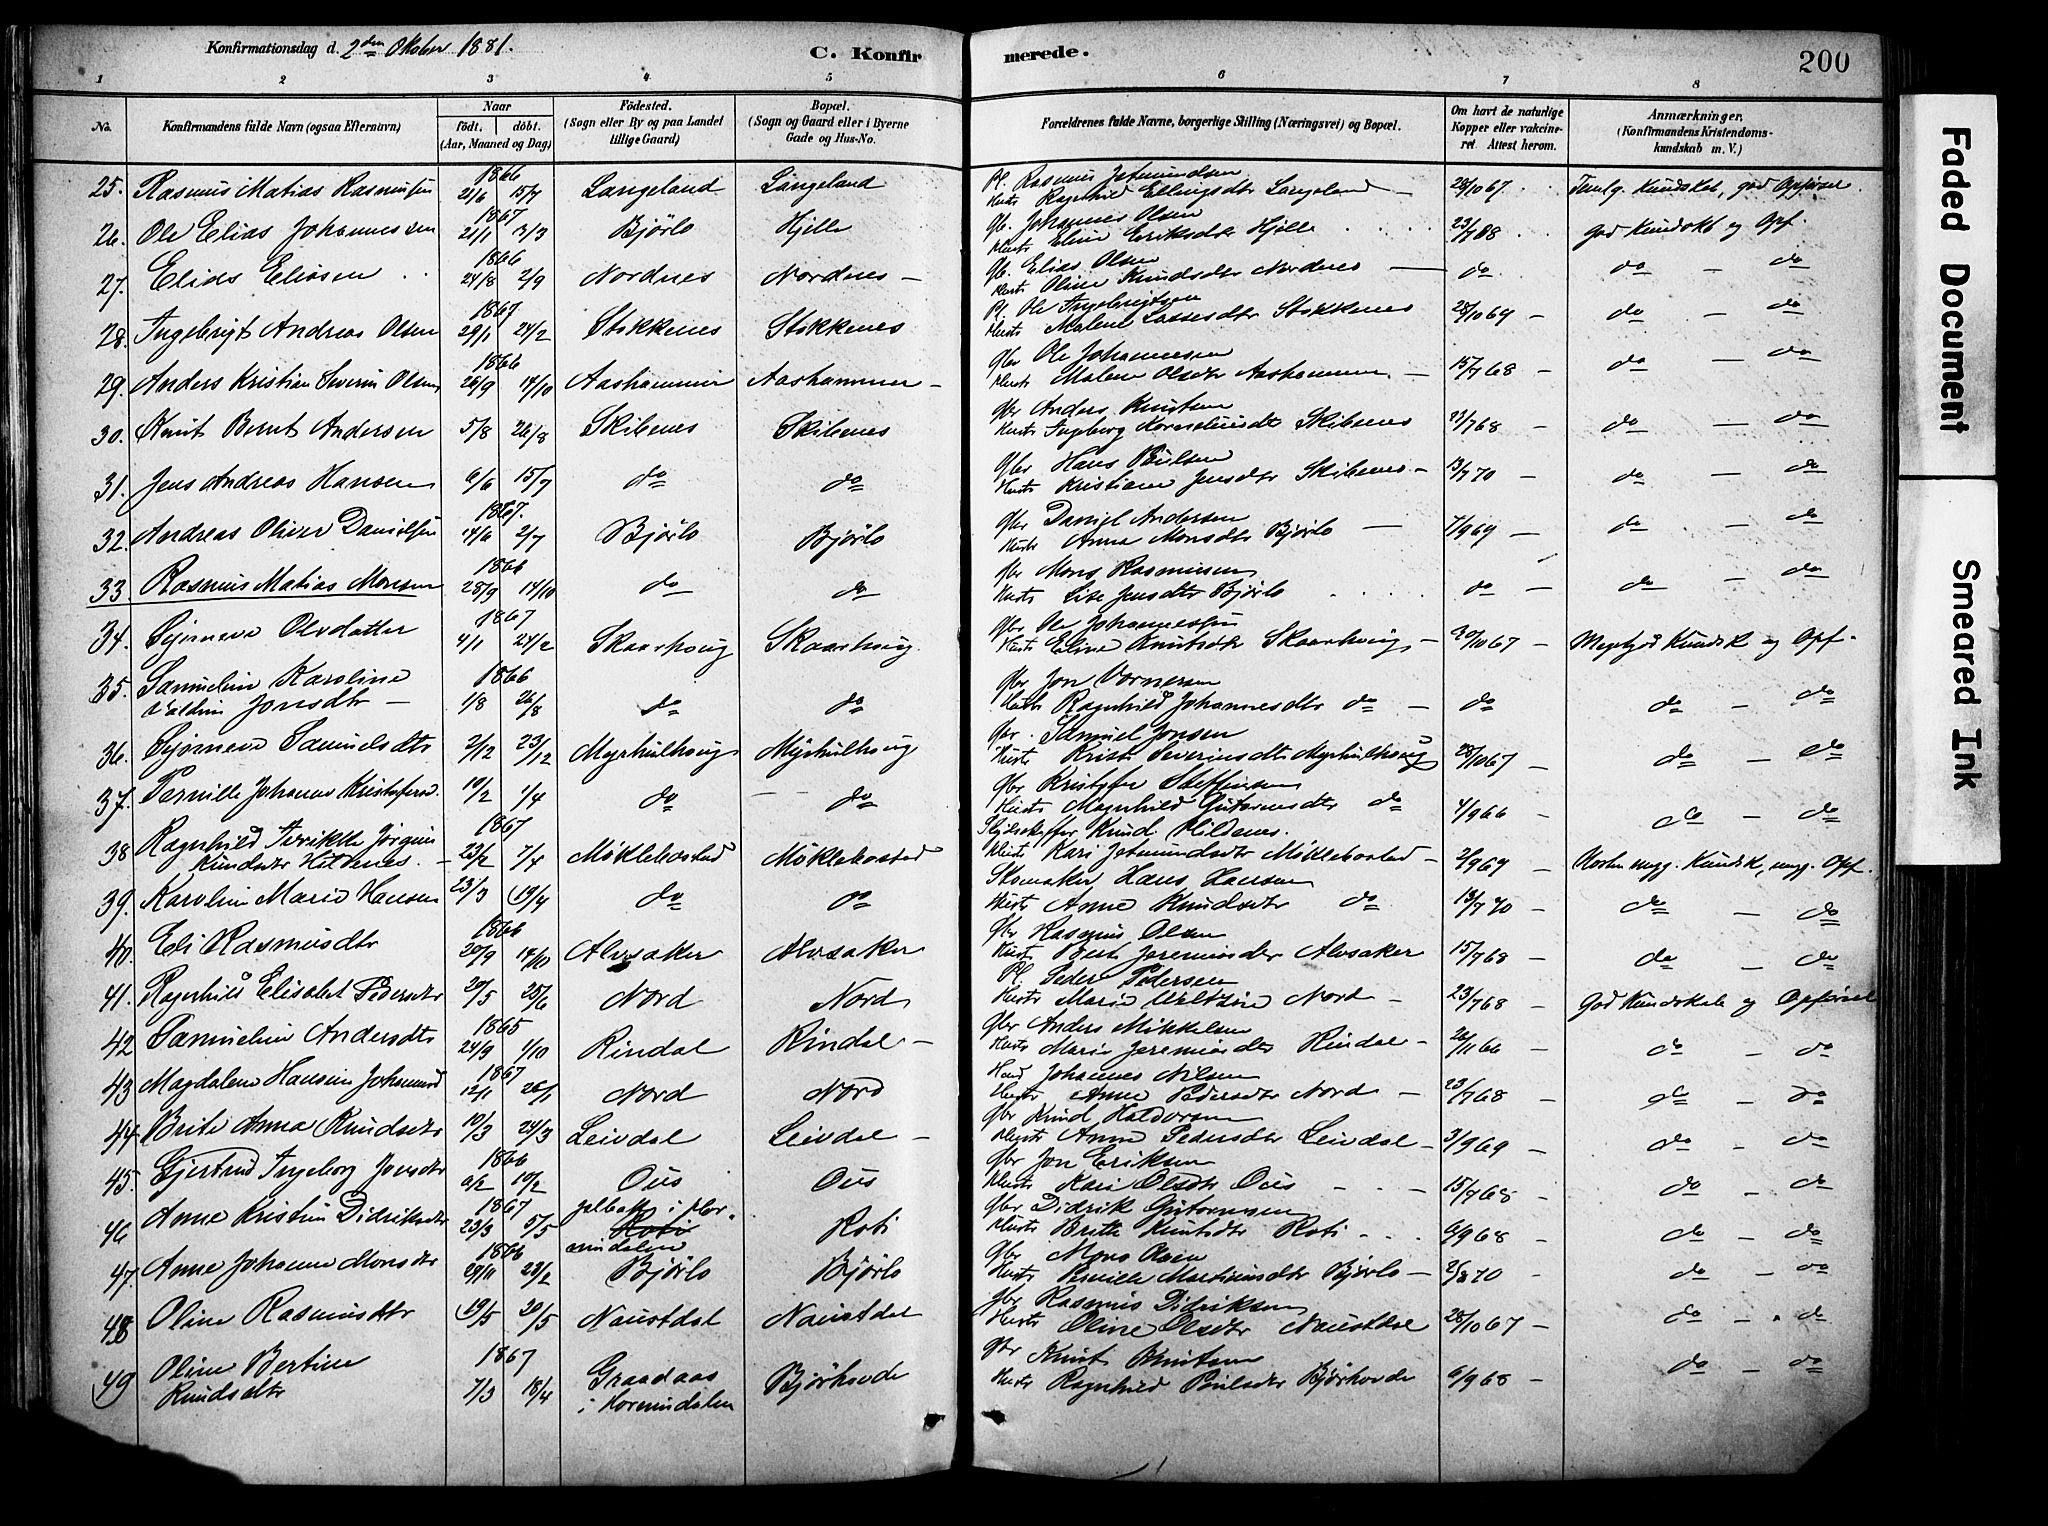 Konfirmationsdag d. 2den Oktober 1881.
C. Konfirmerede.
200
1 2 3 4 5 6 7 8
No.
Konfirmandens fulde Navn (ogsaa Efternavn)
Naar
født. døbt.
(Aar, Maaned og Dag)
Fødested.
(Sogn eller By og paa Landet
tillige Gaard)
Bopæl.
(Sogn og Gaard eller i Byerne
Gade og Hus-No.
Forældrenes fulde Navne, borgerlige Stilling (Næringsvei) og Bopæl.
Om havt de naturlige
Kopper eller vakcine-
ret. Attest herom.
Anmærkninger,
(Konfirmandens Kristendoms-
kundskab m. V.)
1866 Pl. Rasmus Jetmundsen
25. Rasmus Matias Rasmussen 21/6 15/7 Langeland Langeland Hust. Ragnhild Ellingsdtr Langeland 28/10 67. Kundskab, god Opførsel.
1867 Gbr. Johannes Olsen
26. Ole Elias Johannessen 21/1 Bjørlo Hjelle Hust. Eline Eriksdtr Hjelle 23/7 68 God Kundskb og Opf.
1866 Gbr. Elias Olsen
27. Elias Eliasen 24/8 2/9 Nordnes Nordnes Hust Oline Knudsdtr Nordnes do do do
1867 Pl. Ole Ingebrigtsen
28. Ingebrigt Andreas Olsen 29/1 24/2 Stokkenes Stokkenes Hust Malene Lassesdtr Stokkenes 28/10 69 do do
1866 Gbr Ole Johannessen
29. Anders Kristian Severin Olsen 26/9 14/10 Aashammer Aashammer Hust Malene Olsdtr Aashammer 15/7 68 do do
Gbr Anders Knutsen
30. Knut Bernt Andersen 5/8 26/8 Skibenes Skibenes Hust Ingeborg Skibenes 23/7 68 do do
Gbr Hans Paulsen
31. Jens Andreas Hansen 6/6 15/7 do do Hust Kristiane Jensdtr Skibenes 13/7 70 do do
1867. Gbr Daniel Andersen
32. Andreas Oliver Danielsen 14/6 2/7 Bjørlo Bjørlo Hust Anna Monsdtr Bjørlo 7/9 69 do do
1866 Gbr Mons Rasmussen
33 Rasmus Matias Monsen 28/9 14/10 do do Hust Lise Jensdtr Bjørlo do do do
1867 Gbr Ole Johannessen
34. Olsdatter 4/1 24/2 Skaarhoug Skaarhoug Hust Eline Knutsdtr Skaarhoug 67 Meget god Kundsk og Opf.
35. Samueline Karoline 1866 Gbr Jon Vornesen
Jonsdtr 1/8 26/8 do do Hust Ragnhild Johannesdtr do do do do
Gbr. Samuel Jonsen
36. Samuelsdtr 2/12 23/12 Myrhulhoug Myrhulhoug Hust Severinsdtr Myrhulhoug 28/10 67 do do
Gbr Kristoffer Steffensen
37. Pernille Johanne Kristofersd. 10/2 1/4 do do Hust Magnhild Gutormsdtr do 4/9 66 do do
38 Ragnhild Jørgine 1867 Knud Hildenes.
Knudsdtr Hildenes. 23/2 7/4 Møklebostad Møklebostad Hust Kari Jetmundsdtr Møklebostad 2/9 69 Kundsk, Opf.
Skomaker Hans Hansen
39. Karolin Marie Hansen 23/3 19/4 do do Hust Anne Knudsdtr do 13/7 70 do do
1866 Gbr Rasmus Olsen
40. Eli Rasmusdtr 20/9 14/10 Alvsaker Alvsaker Hust Berte Alvsaker 15/7 68 do do
Pl. Peder Pedersen
41. Ragnhild Elisabet Pedersdtr 20/5 25/6 Nord Nord Hust Marie Nord 23/7 68 God Kundskab og Opførsel
1865 Gbr Anders Mikkelsen
42 Samueline Andersdtr 24/9 1/10 Rindal Rindal Hust Maria Jeremiasdtr Rindal 26/11 66 do do
1867 Johannes Nilsen
43 Magdalene Hansine 12/1 26/1 Nord Nord Hust Anne Pedersdtr Nord 23/7 68 do do
Gbr Knud Haldorsen
44. Brite Anna Knudsdtr 10/3 24/3 Leivdal Leivdal Hust Anne Pedersdtr Leivdal 3/9 69 do do
1866 Gbr Jon Eriksen
45. Gjertrud Ingeborg Jonsdtr 6/2 10/2 Ous Ous Hust Kari Olsdtr Ous 15/7 68 do do
1867 i Hor- Gbr Didrik Gutormsen
46 Anne Kristine Didriksdtr 23/3 5/5 nindalen Roti Hust Britte Knutsdtr Roti 6/9 68 do do
1866 Gbr Mons Olsen
47. Anne Johanne Monsdtr 29/11 Bjørlo Bjørlo Hust Pernille Bjørlo 26/8 70 do do
Gbr Rasmus Didriksen
48 Oline Rasmusdtr 19/5 20/5 Naustdal Naustdal Hust Oline Olsdtr Naustdal 28/10 67 do do
49 Oline Bertine 1867 Graadaas Gbr Knut Knutsen
Knudsdtr 7/3 18/4 i Hornindalen Bjørhovde Hust Ragnhild Paulsdtr Bjørhovde 6/9 68 do do
Faded Document
Smeared Ink